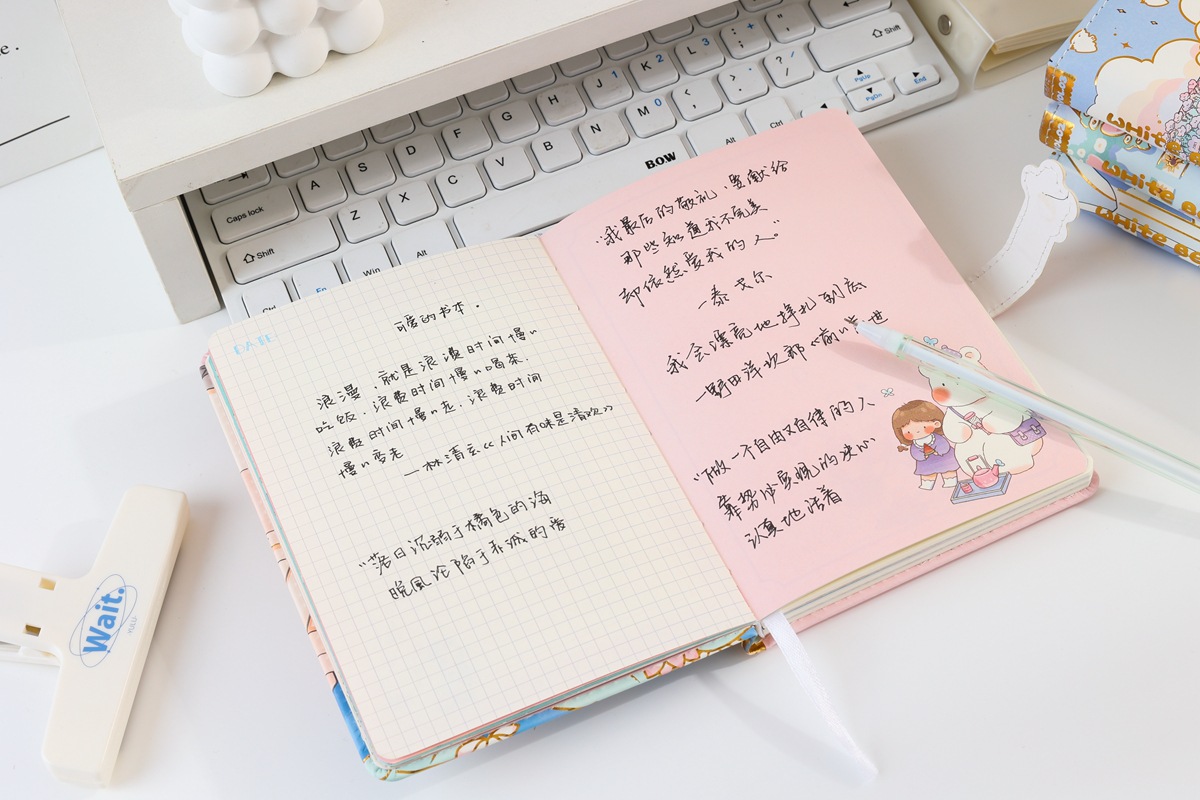 Caps lock
A
S
D
F
G
H
J 1
K 2
L 3
: ; +
" '
Shift
Shift
Z
X
C
V
B
N
M 0
< ,
> .
? / /
PgUp
Ctrl
Fn
Win
Alt
BOW
Alt
Ctrl
PgDn
End
DATE
可爱的书本.
浪漫,就是浪费时间慢慢
吃饭.浪费时间慢慢喝茶.
浪费时间慢慢走.浪费时间
慢慢变老
——林清玄《人间有味是清欢》
"落日沉溺于橘色的海
晚風沦陷于赤诚的爱
"我最后的敬礼,要献给
那些知道我不完美
却依然爱我的人"
-泰戈尔
我会漂亮地挣扎到底
-野田洋次郎《前前前世
"做一个自由又自律的人
靠势必实现的决心
认真地活着
Wait.
YULU